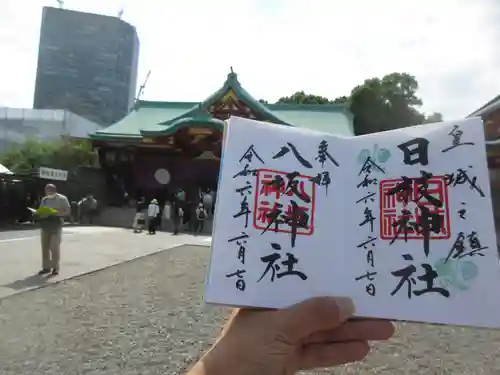 皇城之鎮
日枝神社
令和六年六月七日
奉拝
八坂神社
令和六年六月七日